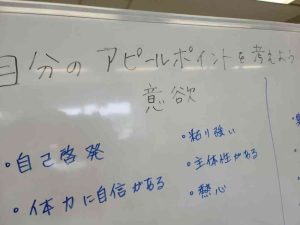 自分のアピールポイントを考えよう
意欲
・自己啓発
・体力に自信がある
・粘り強い
・主体性がある
・熱心